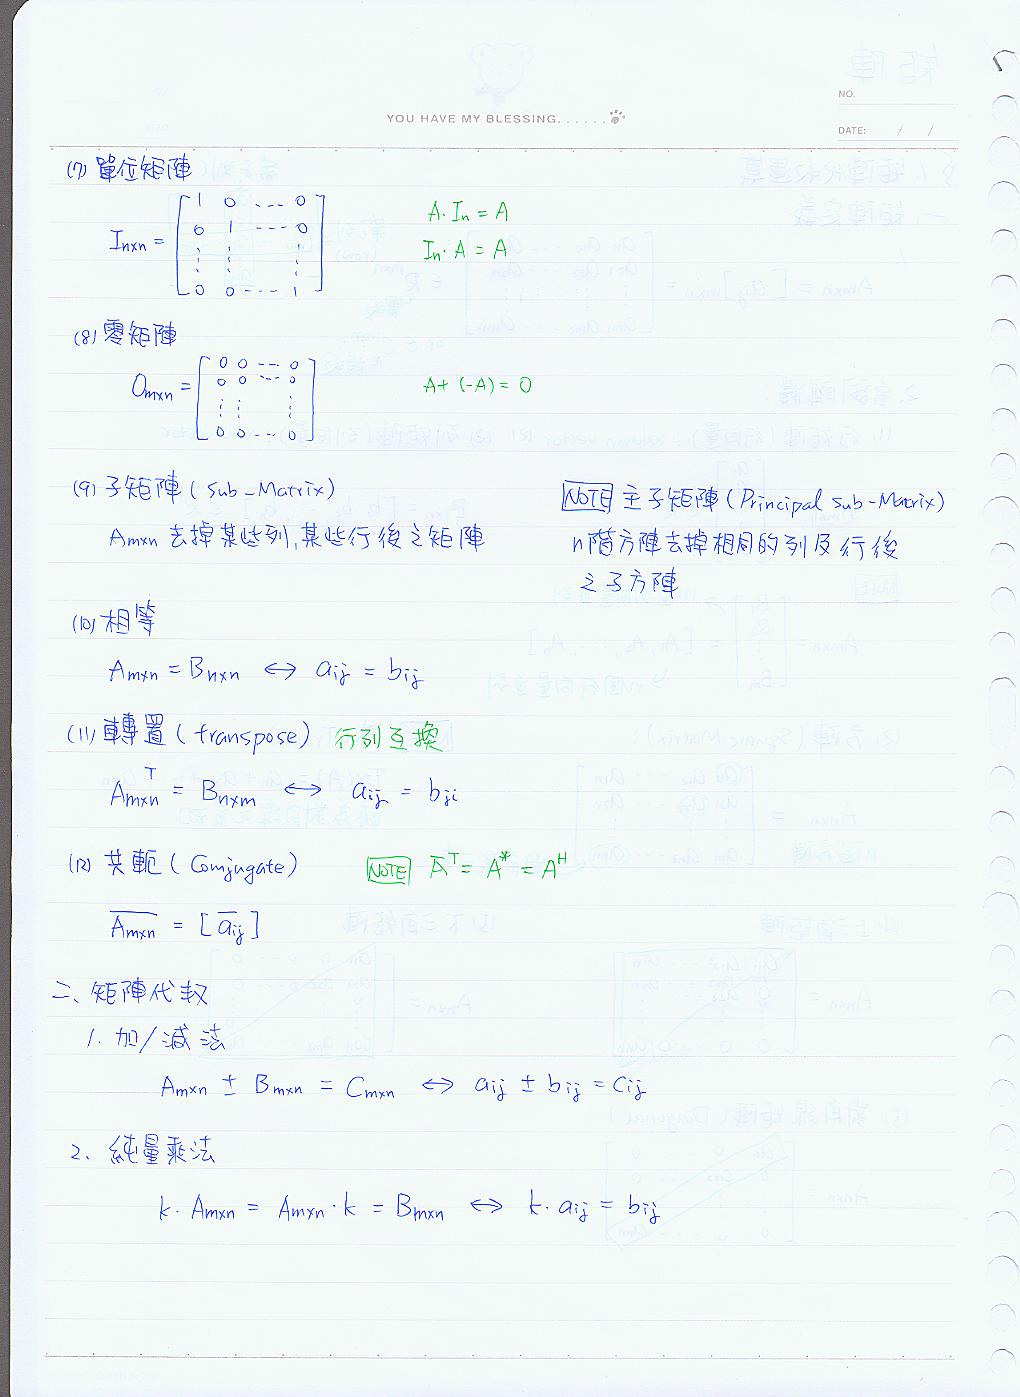 NO.
YOU HAVE MY BLESSING......
DATE: / /
(7) 單位矩陣
Inxn = [ 1 0 ---- 0
0 1 ---- 0
⋮ ⋮ ⋮
0 0 ---- 1 ]
A·In = A
In·A = A
(8) 零矩陣
Omxn = [ 0 0 --- 0
0 0 --- 0
⋮ ⋮ ⋮
0 0 --- 0 ]
A+(-A) = 0
(9) 子矩陣(Sub-Matrix)
Amxn 去掉某些列,某些行後之矩陣
NOTE 主子矩陣(Principal sub-Matrix)
n階方陣去掉相同的列及行後
之子方陣
(10) 相等
Amxn = Bnxn ⟷ aij = bij
(11) 轉置(transpose) 行列互換
Amxn^T = Bnxm ⟷ aij = bji
(12) 共軛(Conjugate)
NOTE Ā^T = A^* = A^H
A̅m̅x̅n̅ = [a̅i̅j̅]
二、矩陣代数
1. 加/減法
Amxn ± Bmxn = Cmxn ⟷ aij ± bij = Cij
2. 純量乘法
k·Amxn = Amxn·k = Bmxn ⟷ k·aij = bij